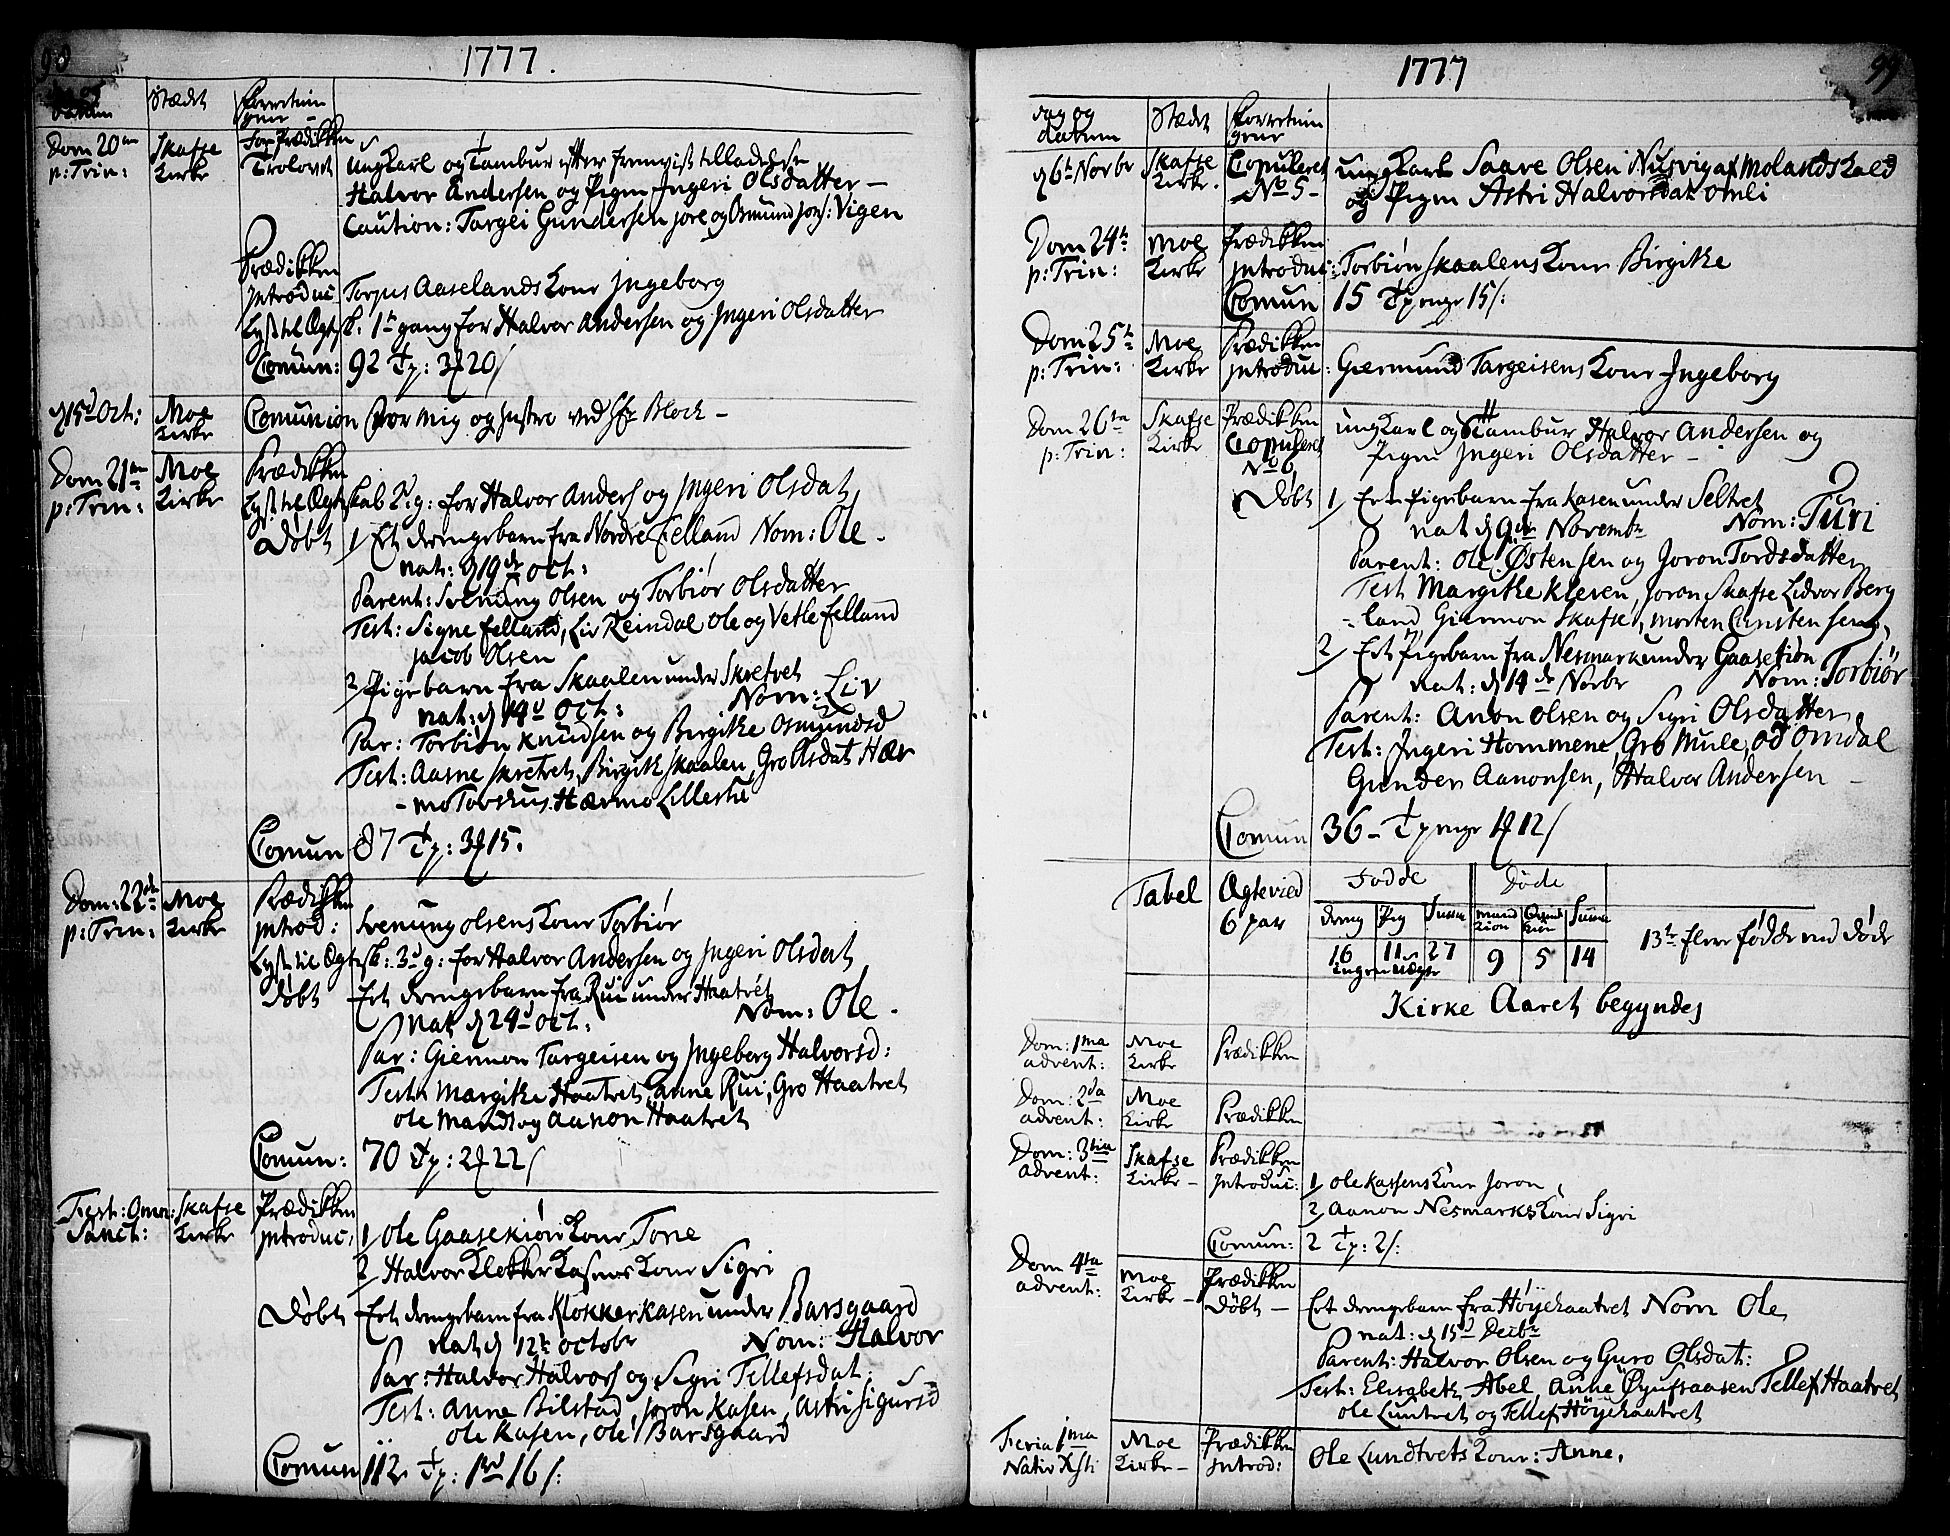 98
1777.
Dag og Datum | Stædet | Forretninger
Dom 20de p: Trin: | Skafse Kirke | For Prædikken Trolovet
Ungkarl og Tambur efter fremvist tilladelse
Halvor Andersen og Pigen Ingeri Olsdatter –
Caution: Targei Gundersen Jore og Osmund Jons: Vigen
Prædikken
Introduc: Torjus Aaselands Kone Ingeborg
Lyst til Ægtesk. 1te gang for Halvor Andersen og Ingeri Olsdatter
Comun: 92 Tp: 3 20/
d 15d Oct: | Moe Kirke | Comunion for mig og hustru ved Hr Block –
Dom 21de p: Trin: | Moe Kirke | Prædikken
Lyst til Ægteskab 2d g: for Halvor Anders og Ingeri Olsdat
Døbt 1/ Et drengebarn fra Nordre Felland Nom: Ole.
nat: d 19de Oct:
Parent: Svenung Olsen og Torbiør Olsdatter
Test: Signe Felland, Liv Reindal Ole og Vetle Felland
Jacob Olsen
2/ Pigebarn fra Skaalen under Skretvet
nat: d 14d Oct: Nom: Liv
Par: Torbiøn Knudsen og Birgitke Osmundsd
Test: Aasne Skretvet, Birgit Skaalen, Gro Olsdat Hær
-mo Torskus Hærmo Lillestue
Comun 87 Tp: 3 15.
Dom: 22de p: Trin: | Moe Kirke | Prædikken
Introd: Svenung Olsens Kone Torbiør
Lyst til Ægtesk: 3d g: for Halvor Andersen og Ingeri Olsdat
Døbt Et drengebarn fra Rui under Haatvet
nat d 24d Oct: Nom: Ole.
Par: Giermon Targeisen og Ingeborg Halvorsd:
Test: Margitke Haatvet, Anne Rui, Gro Haatvet
Ole Mandt og Aanon Haatvet
Comun: 70 Tp: 2 22/
Fest: Omn: Sanct: | Skafse Kirke | Prædikken
Introduc: 1/ Ole Gaasekiøn Kone Tone
2/ Halvor Klokker Kasens Kone Sigri
Døbt Et drengebarn fra Klokkerkasen under Barsgaard
nat d 12te October Nom: Halvor
Par: Halvor Halvors og Sigri Tellefsdat
Test: Anne Bilstad, Joron Kasen, Astri Sigursd
Ole Kasen, Ole Barsgaard
Comun 112 Tp: 1 16/:
99
1777
Dag og Datum | Stædet | Forretninger
d 6te Novbr | Skafse Kirke. | Copuleret No 5 –
ungkarl Saave Olsen Nesvig af Molands Sogn
og Pigen Astri Halvorsdat Omli
Dom 24de p: Trin: | Moe Kirke | Prædikken
Introduc: Torbiøn Skaalens Kone Birgitke
Comun 15 Tpenge 15/:
Dom 25te p: Trin: | Moe Kirke | Prædikken
Introduc: Giermund Targeisens Kone Ingeborg
Dom 26ta p: Trin: | Skafse Kirke | Prædikken
Copuleret No 6
ungkarl og Tambur Halvor Andersen og
Pigen Ingeri Olsdatter –
Døbt 1/ Et Pigebarn fra Kasen under Seltvet
nat d 9de Novembr Nom: Turi
Parent: Ole Østensen og Joron Tordsdatter
Test Margitke Kleven, Joron Skafse Lidvor Berg
-land Giermon Skafse, Morten Carsten sen,
2/ Et Pigebarn fra Nesmark under Gaasekiøn
nat: d 14de Novbr Nom: Torbiør
Parent: Anon Olsen og Sigri Olsdatter
Test: Ingeri Hommene, Gro Mule, Od Omdal
Gunder Aanonsen, Halvor Andersen –
Comun 36 – Tpenge 1 12/
Tabel | Ægteviet 6 par | Fødde | Døde
Dreng | Pig | Suma | Mand kion | Qvind kion | Suma
16 | 11 | 27 | 9 | 5 | 14 | 13te flere fødde end døde
Ingen uægte
Kirke Aaret begyndes
Dom: 1ma advent: | Moe Kirke | Prædikken
Dom: 2da advent: | Moe Kirke | Prædikken
Dom: 3tia advent: | Skafse Kirke – | Prædikken
Introduc: 1/ Ole Kassens Kone Joron,
2/ Aanon Nesmarks Kone Sigri
Comun: 2 Tp: 2/:
Dom 4ta advent: | Moe Kirke – | Prædikken
Døbt – Et drengebarn fra Høyehaatvet Nom Ole
nat: d 15d Decbr
Parent: Halvor Olsen og Guro Olsdat:
Test: Elisabeth Abel, Anne Øyufsaasen Tellef Haatvet
Ole Luntvet og Tellef Høyehaatvet
Feria 1ma Nativ Xsti | Moe Kirke – | Prædikken
Introd: Ole Lundtvets Kone: Anne.